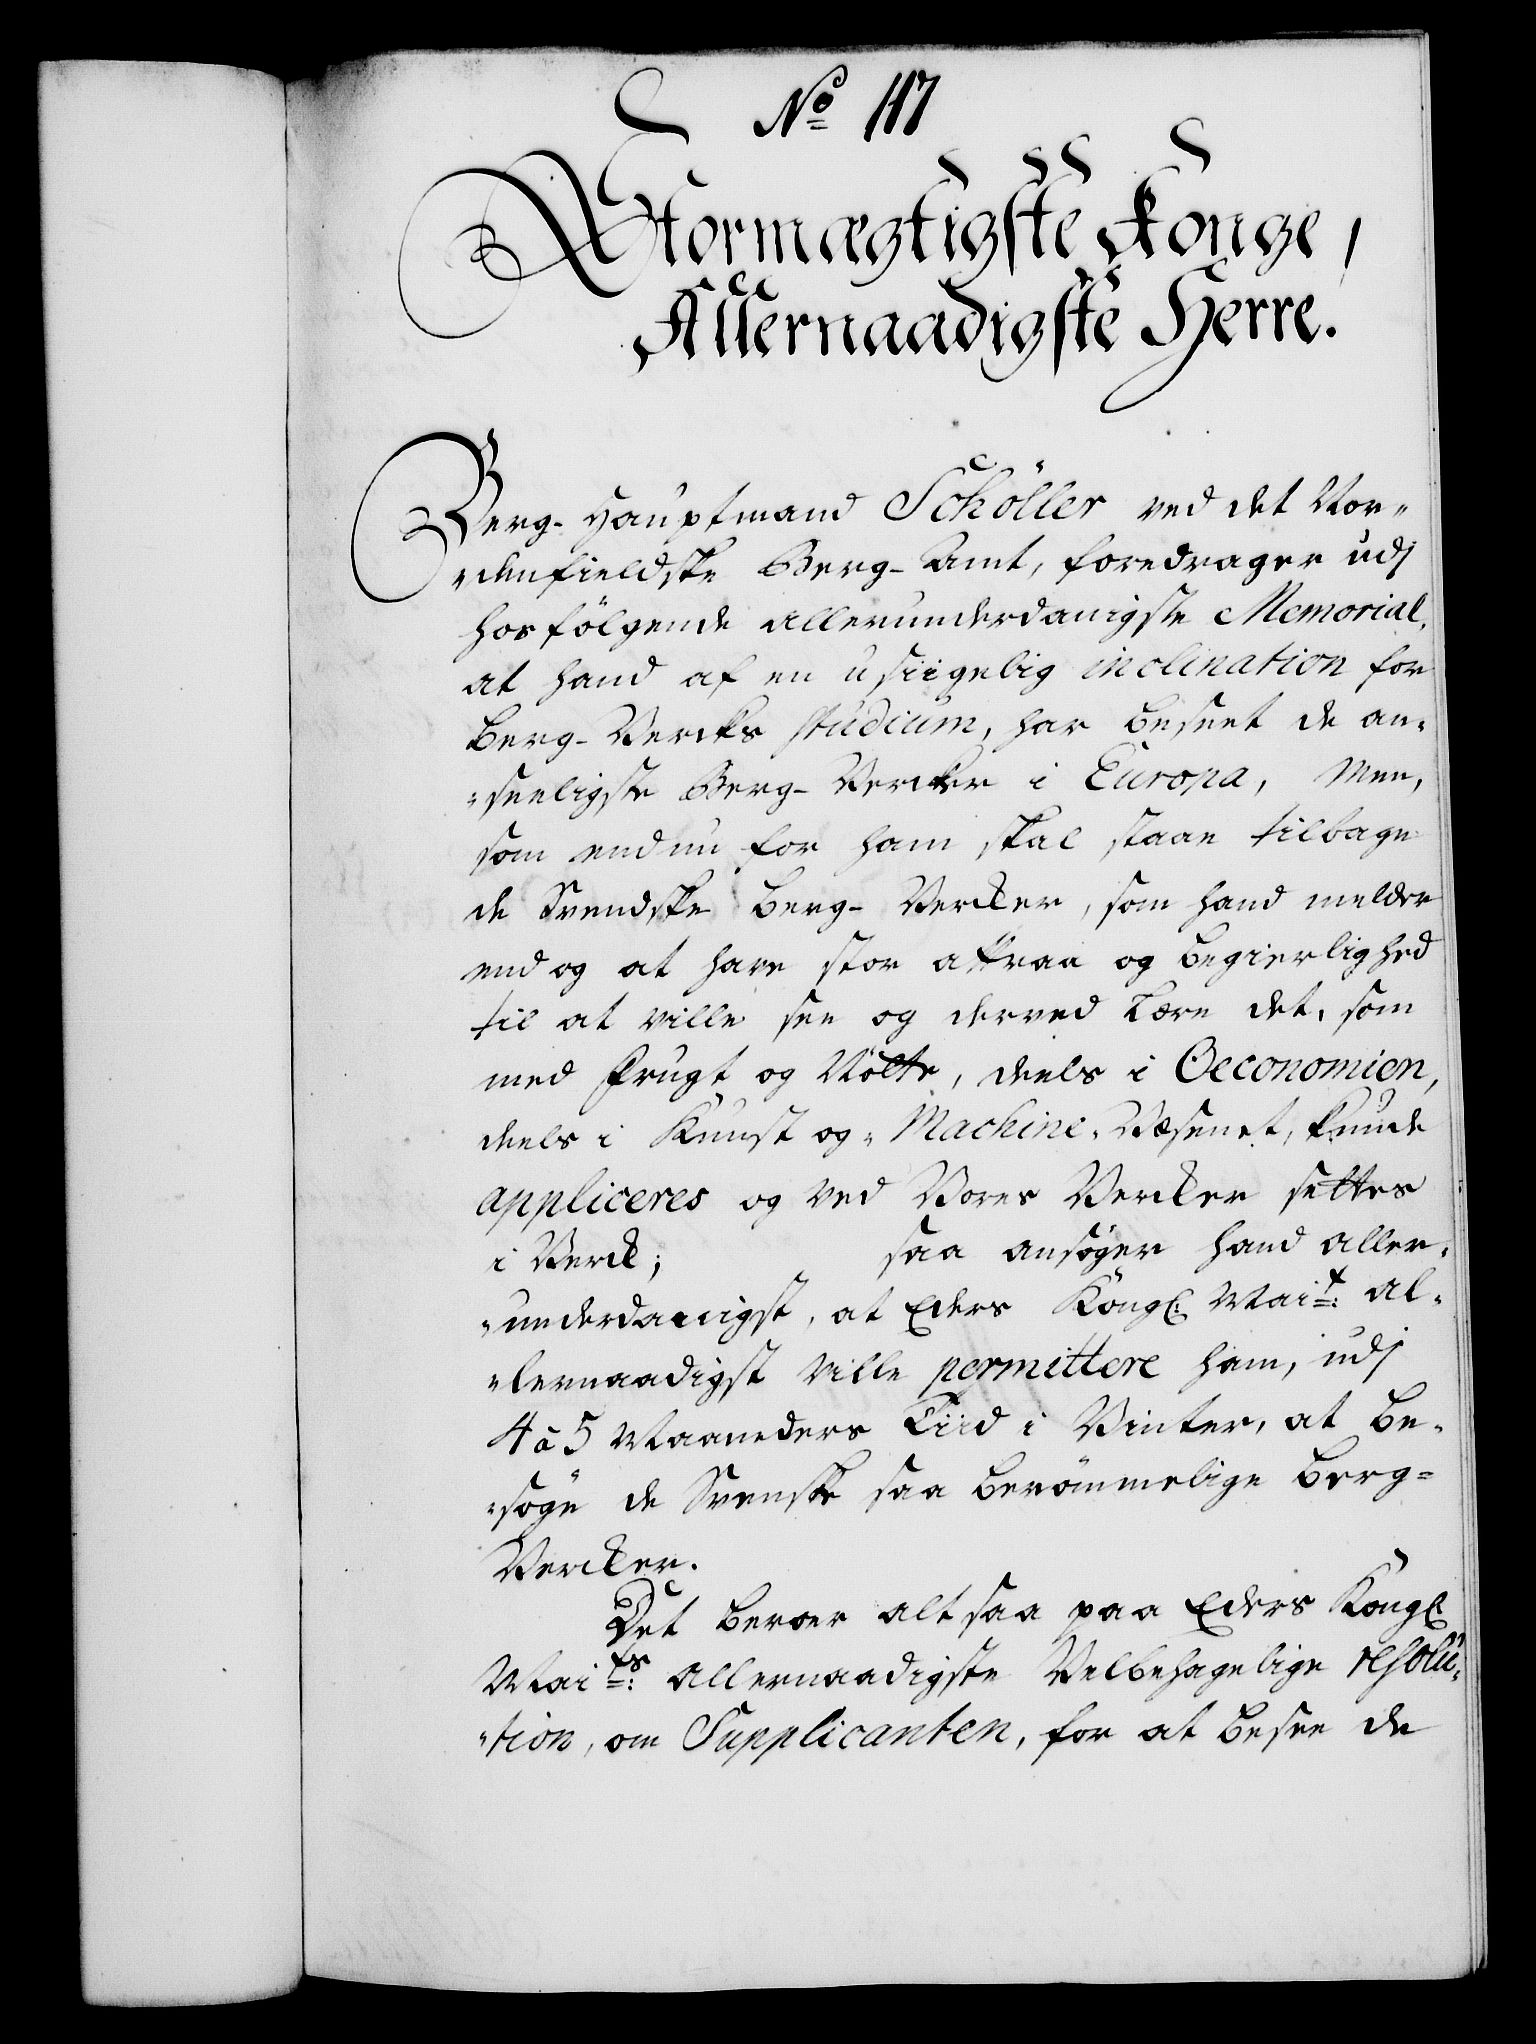 No 117
Stormægtigste Konge,
Allernaadigste Herre.
Berg-Hauptmand Schöller ved det Nor-
denfieldske Berg-Amt, foredrager udj
hosfölgende allerunderdanigste Memorial,
at hand af en usiigelig inclination for
Berg-Vercks studium, har beseet de an-
seeligste Berg-Vercker i Europa, Men,
som endnu for ham skal staae tilbage
de Svendske Berg-Vercker, som hand melder
end og at have stor attraa og begierlighed
til at ville see og derved lære det, som
med Frugt og Nötte, deels i Oeconomien,
deels i Kunst og Machine-Væsenet, kunde
appliceres og ved Vores Vercker settes
i Verck; saa ansöger hand aller-
underdanigst, at Eders Kongl. Mait: al-
lernaadigst ville permittere ham, udj
4 à 5 Maaneders Tiid i Vinter, at be-
söge de Svenske saa berömmelige Berg-
Vercker.
Det beroer altsaa paa Eders Kongl.
Maits: allernaadigste Velbehagelige resolu-
tion, om Supplicanten, for at besee de